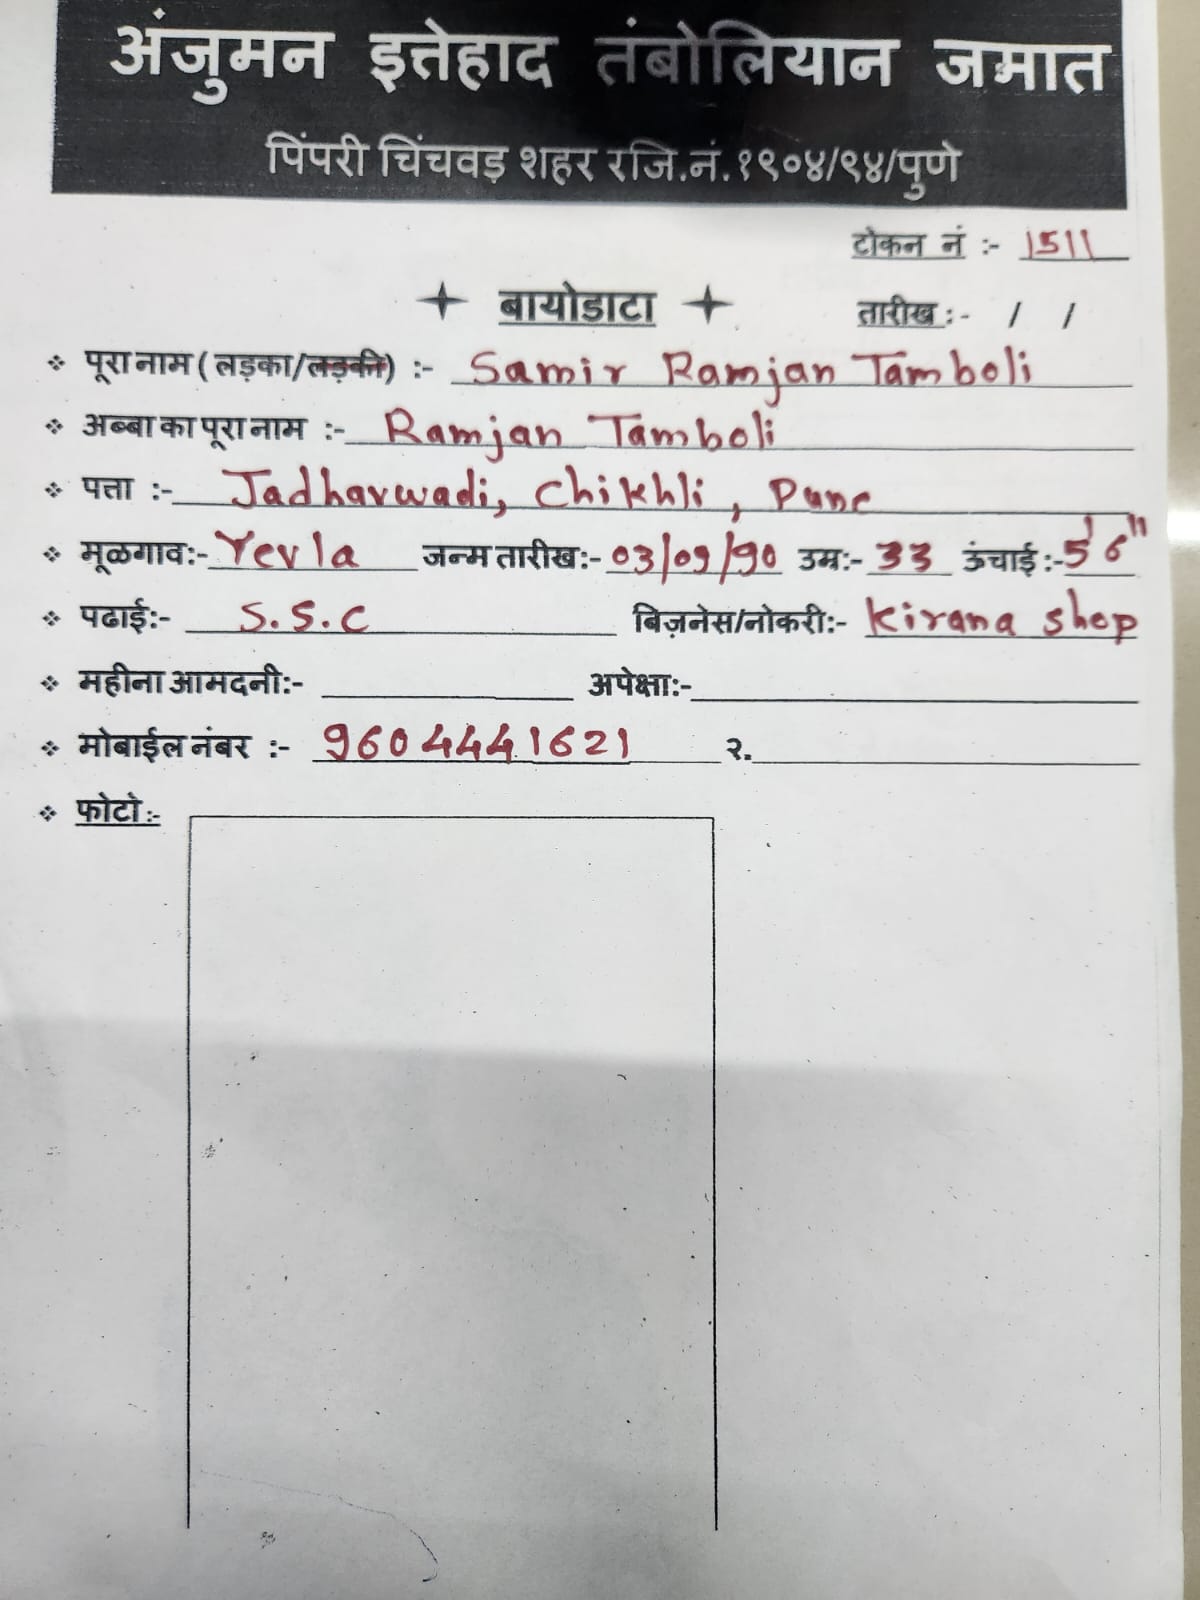 अंजुमन इत्तेहाद तंबोलियान जमात
पिंपरी चिंचवड़ शहर रजि.नं.१९०४/९४/पुणे
टोकन नं :- 1511
बायोडाटा
तारीख :- / /
पूरा नाम ( लड़का/लड़की) :- Samir Ramjan Tamboli
अब्बा का पूरा नाम :- Ramjan Tamboli
पत्ता :- Jadhavwadi, Chikhli, Pune
मूळगाव:- Yevla जन्म तारीख:- 03/09/90 उम्र:- 33 ऊंचाई :- 5'6"
पढाई:- S.S.C बिज़नेस/नोकरी:- Kirana shop
महीना आमदनी:- अपेक्षा:-
मोबाईल नंबर :- 9604441621 २.
फोटो :-